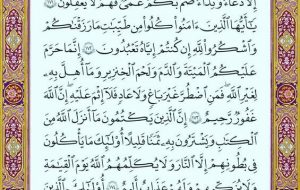 إِلَّا دُعَآءً وَنِدَآءً صُمٌّ بُكْمٌ عُمْىٌ فَهُمْ لَا يَعْقِلُونَ ۝١٧١
يَـٰٓأَيُّهَا ٱلَّذِينَ ءَامَنُوا۟ كُلُوا۟ مِن طَيِّبَـٰتِ مَا رَزَقْنَـٰكُمْ
وَٱشْكُرُوا۟ لِلَّهِ إِن كُنتُمْ إِيَّاهُ تَعْبُدُونَ ۝١٧٢ إِنَّمَا حَرَّمَ
عَلَيْكُمُ ٱلْمَيْتَةَ وَٱلدَّمَ وَلَحْمَ ٱلْخِنزِيرِ وَمَآ أُهِلَّ بِهِۦ
لِغَيْرِ ٱللَّهِ فَمَنِ ٱضْطُرَّ غَيْرَ بَاغٍ وَلَا عَادٍ فَلَآ إِثْمَ عَلَيْهِ إِنَّ ٱللَّهَ
غَفُورٌ رَّحِيمٌ ۝١٧٣ إِنَّ ٱلَّذِينَ يَكْتُمُونَ مَآ أَنزَلَ ٱللَّهُ مِنَ
ٱلْكِتَـٰبِ وَيَشْتَرُونَ بِهِۦ ثَمَنًا قَلِيلًا أُو۟لَـٰٓئِكَ مَا يَأْكُلُونَ
فِى بُطُونِهِمْ إِلَّا ٱلنَّارَ وَلَا يُكَلِّمُهُمُ ٱللَّهُ يَوْمَ ٱلْقِيَـٰمَةِ
وَلَا يُزَكِّيهِمْ وَلَهُمْ عَذَابٌ أَلِيمٌ ۝١٧٤ أُو۟لَـٰٓئِكَ ٱلَّذِينَ